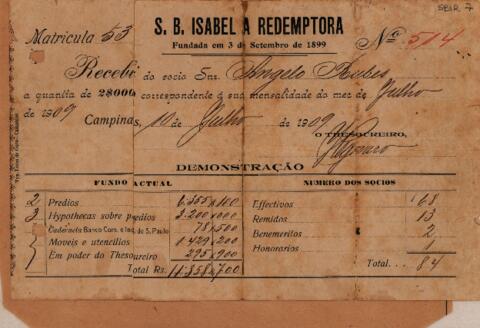 SBIR 7
S. B. ISABEL A REDEMPTORA
Matricula 53
Fundada em 3 de Setembro de 1899
Nº 514
Recebi do socio Snr. Angelo
a quantia de 2$000 correspondente á sua mensalidade do mez de Julho
de 1909 Campinas, 10 de Julho de 1909
O THESOUREIRO,
DEMONSTRAÇÃO
FUNDO ACTUAL
2 Predios 6.355$100
3 Hypothecas sobre predios 3.200$000
Caderneta Banco Com. e Ind. de S. Paulo 78$500
Moveis e utencilios 1429$200
Em poder do Thesoureiro 295$900
Total Rs. 11.358$700
NUMERO DOS SOCIOS
Effectivos 68
Remidos 13
Benemeritos 2
Honorarios 1
Total 84